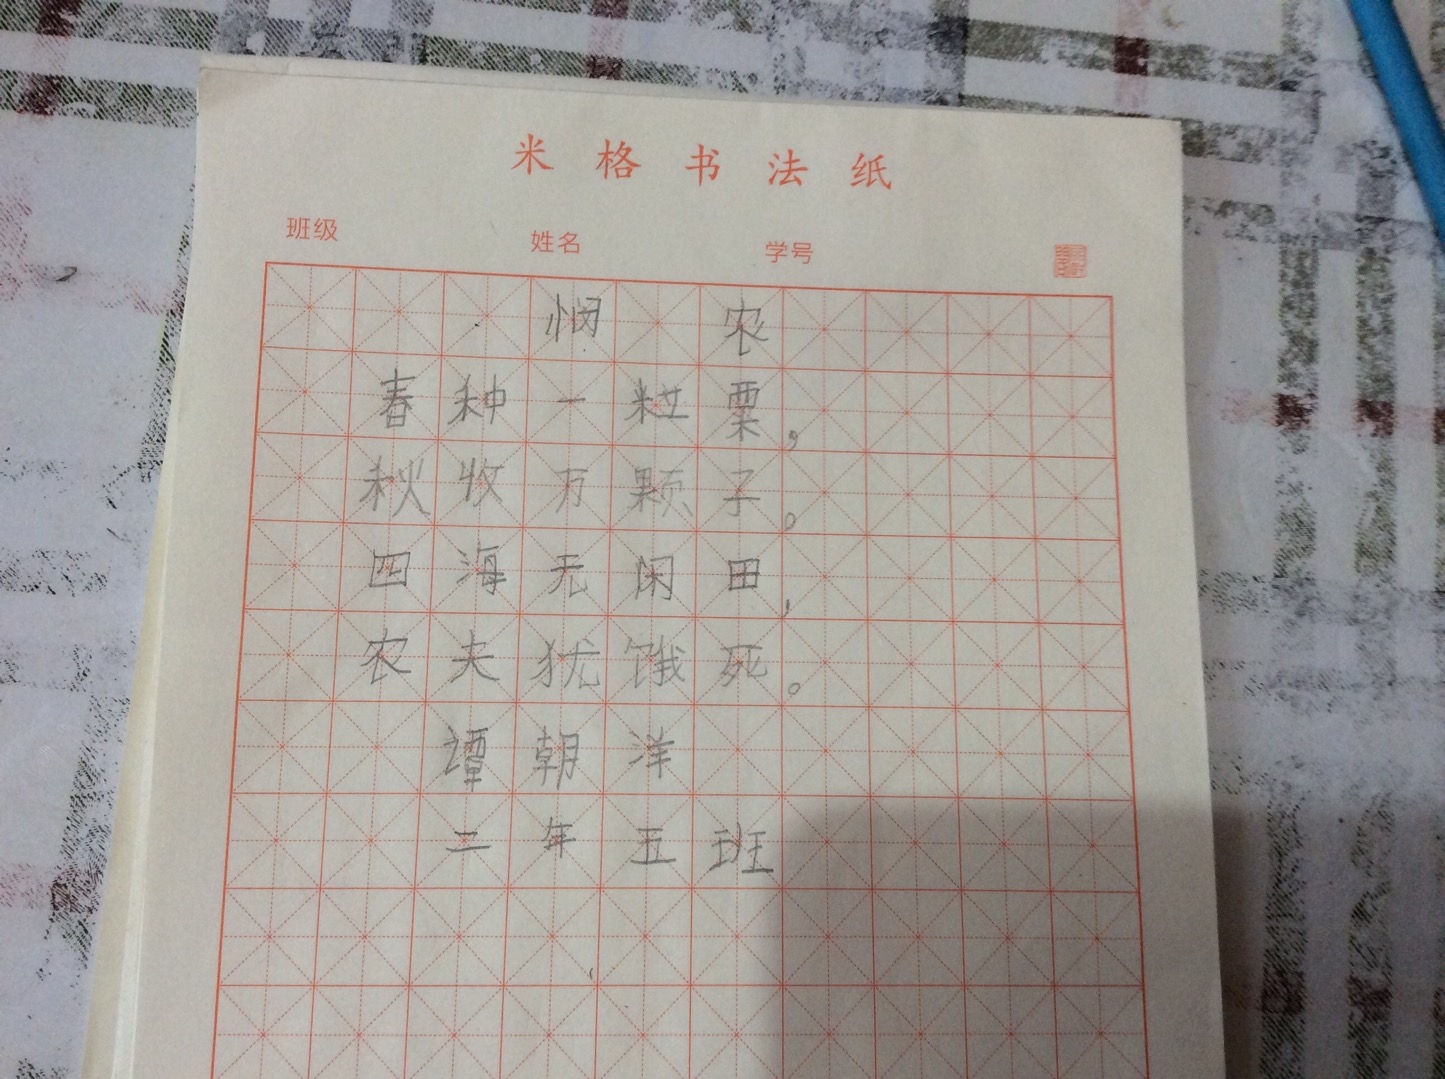 米格书法纸
班级 姓名 学号
悯农
春种一粒粟，
秋收万颗子。
四海无闲田，
农夫犹饿死。
谭朝洋
二年五班